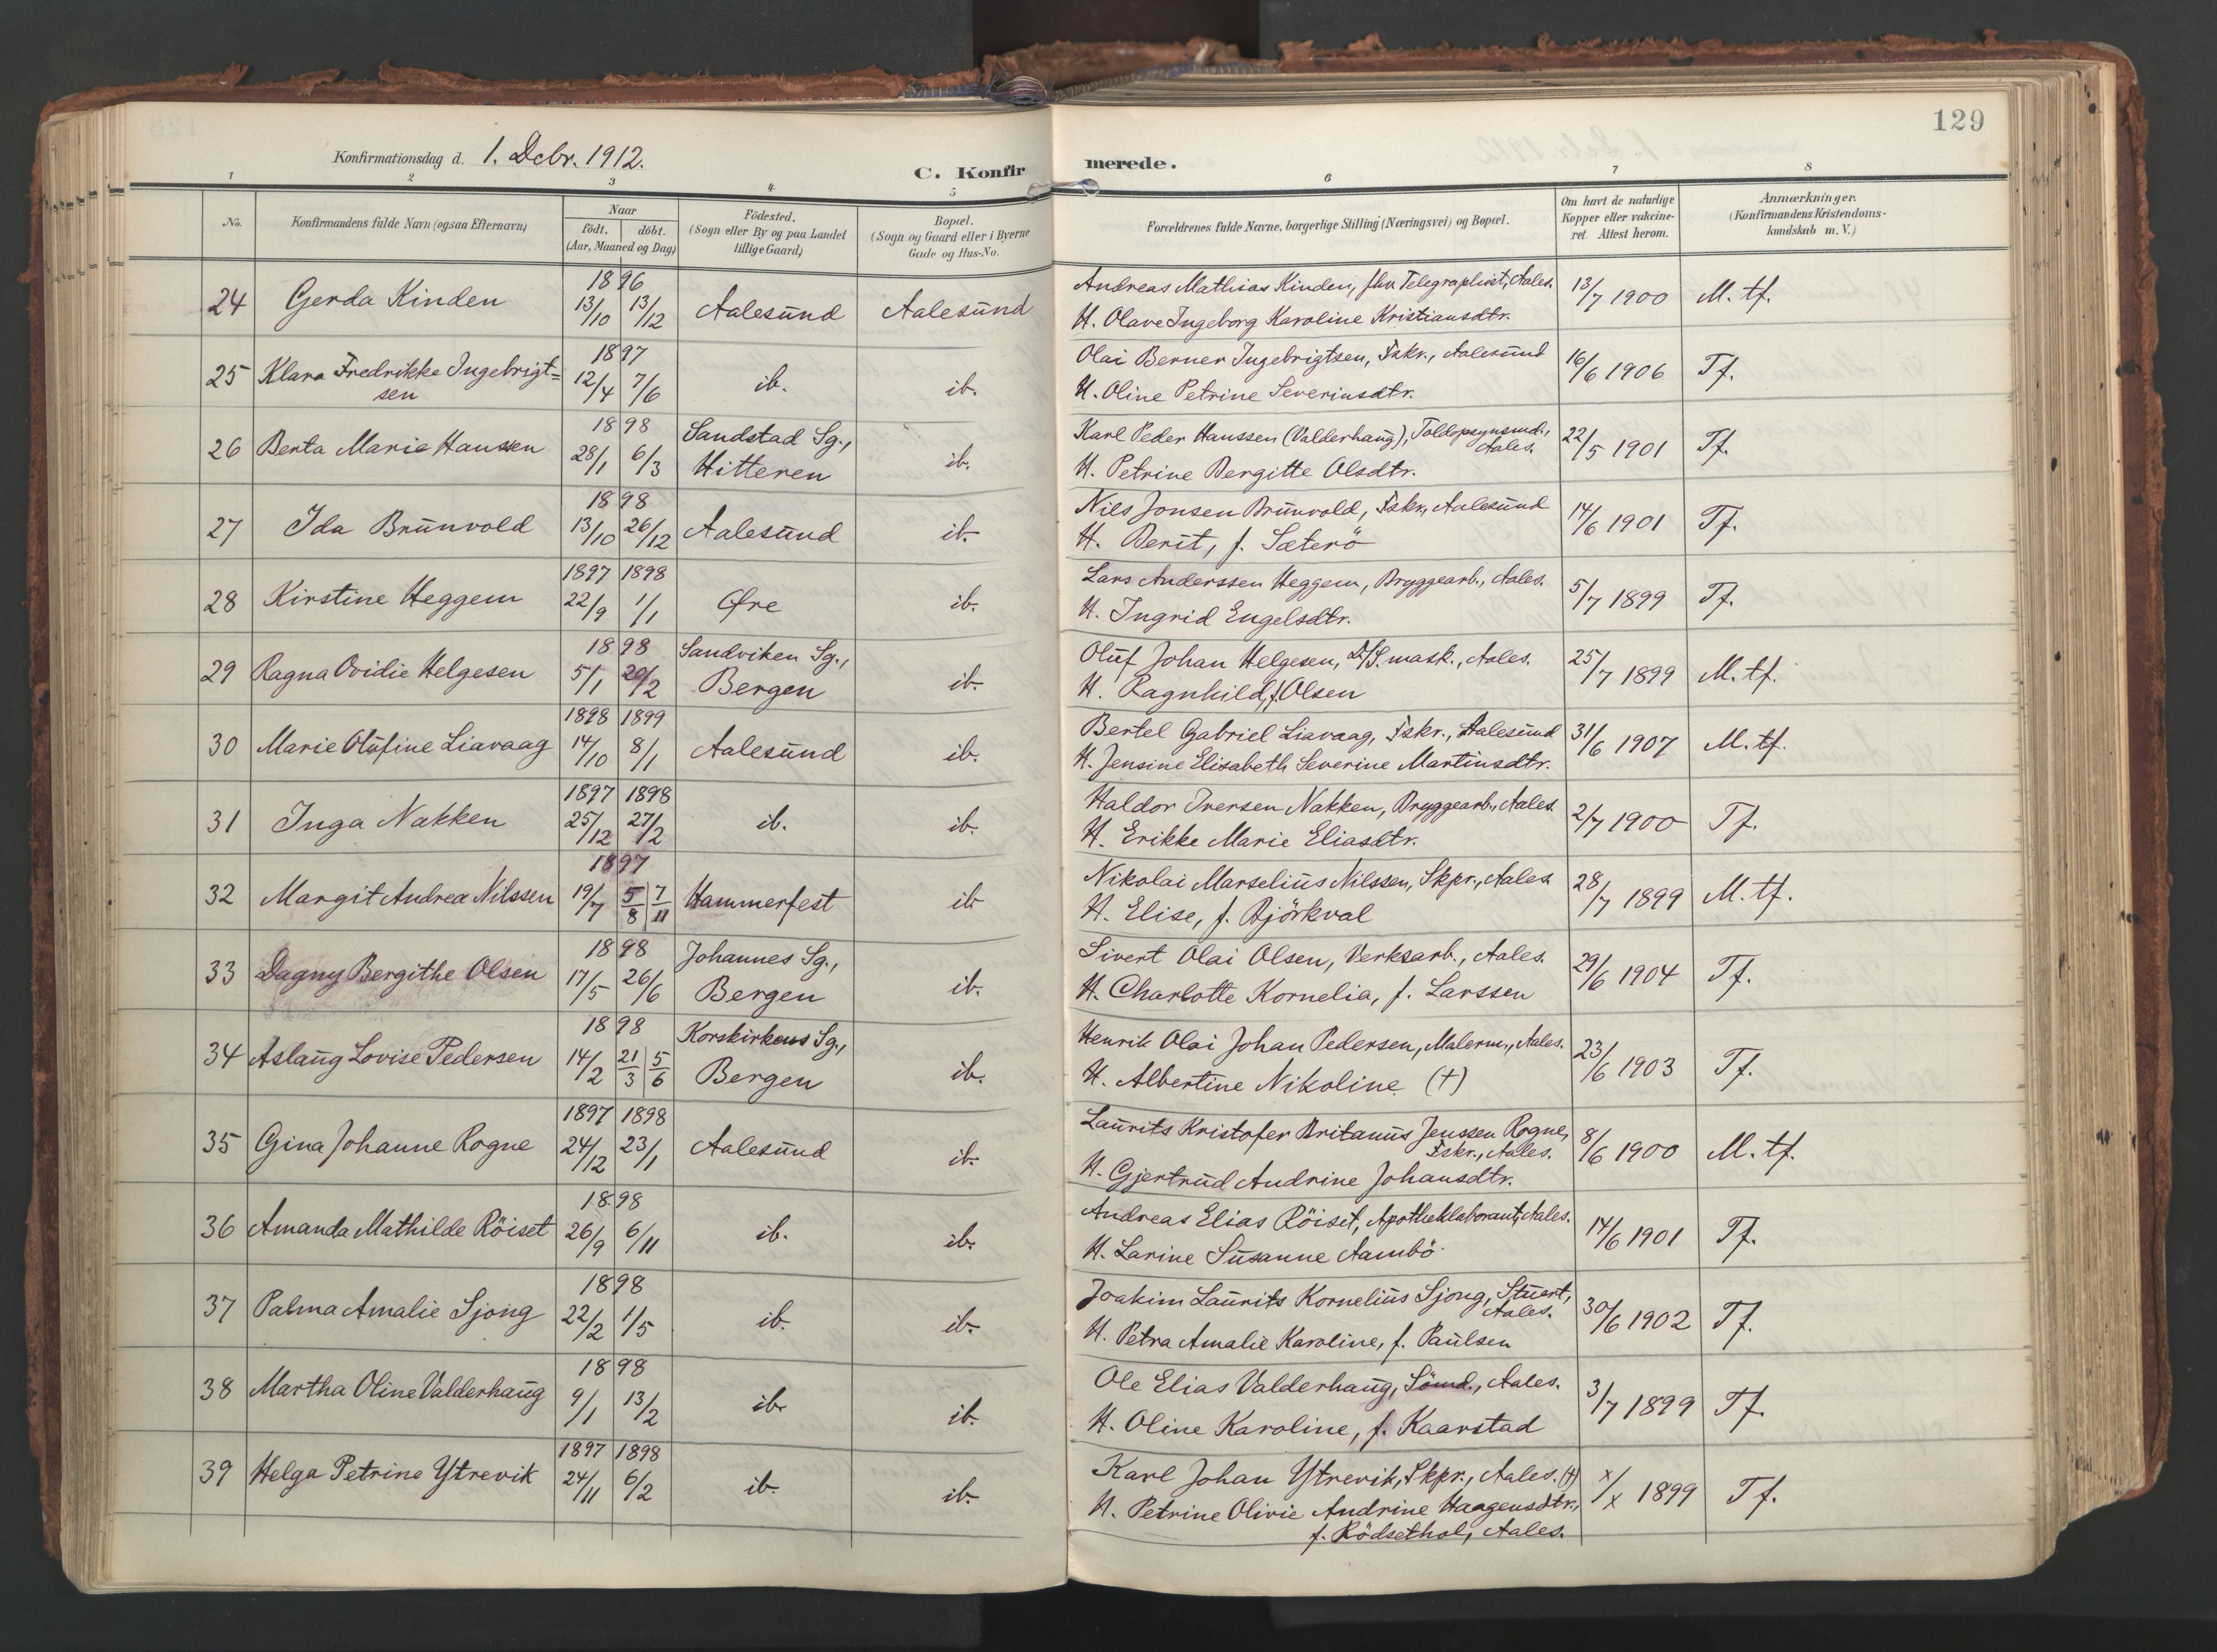 129
Konfirmationsdag d. 1. Debr. 1912.
C. Konfirmerede.
1 2 3 4 5 6 7 8
No.
Konfirmandens fulde Navn (ogsaa Efternavn)
Naar
födt. döbt.
(Aar, Maaned og Dag)
Födested.
(Sogn eller By og paa Landet
tillige Gaard)
Bopæl.
(Sogn og Gaard eller i Byerne
Gade og Hus-No.
Forældrenes fulde Navne, borgerlige Stilling (Næringsvei) og Bopæl.
Om havt de naturlige
Kopper eller vakcine-
ret. Attest herom.
Anmærkninger.
(Konfirmandens Kristendoms-
kundskab m. V.)
24 Gerda Kinden 1896 13/10 13/12 Aalesund Aalesund
Andreas Mathias Kinden, fhv. Telegraphist, Aales.
H. Olave Ingeborg Karoline Kristiansdtr.
13/7 1900 M. tf.
25 Klara Fredrikke Ingebrigt=
sen
1897 12/4 7/6 ib. ib.
Olai Berner Ingebrigtsen, Fskr., Aalesund
H. Oline Petrine Severinsdtr.
16/6 1906 Tf.
26 Berta Marie Hanssen 1898 28/1 6/3
Sandstad Sg.,
Hitteren
ib.
Karl Peder Hanssen (Valderhaug), Toldopsynsmd.,
Aales.
H. Petrine Bergitte Olsdtr.
22/5 1901 Tf.
27 Ida Brunvold 1898 13/10 26/12 Aalesund ib.
Nils Jonsen Brunvold, Fskr., Aalesund
H. Berit, f. Sæterö
14/6 1901 Tf.
28 Kirstine Heggem 1897 1898 22/9 1/1 Øre ib.
Lars Anderssen Heggem, Bryggearb., Aales.
H. Ingrid Engelsdtr.
5/7 1899 Tf.
29 Ragna Ovidie Helgesen 1898 5/1 20/2
Sandviken Sg.,
Bergen
ib.
Oluf Johan Helgesen, D/S. mask., Aales.
H. Ragnhild, f. Olsen
25/7 1899 M. tf.
30 Marie Olufine Liavaag 1898 1899 14/10 8/1 Aalesund ib.
Bertel Gabriel Liavaag, Fskr., Aalesund
H. Jensine Elisabeth Severine Martinsdtr.
31/6 1907 M. tf.
31 Inga Nakken 1897 1898 25/12 27/2 ib. ib.
Haldor Iversen Nakken, Bryggearb., Aales.
H. Erikke Marie Eliasdtr.
2/7 1900 Tf.
32 Margit Andrea Nilssen 1897 19/7 5/8 7/11 Hammerfest ib
Nikolai Marselius Nilssen, Skpr., Aales.
H. Elise, f. Björkval
28/7 1899 M. tf.
33 Dagny Bergithe Olsen 1898 17/5 26/6
Johannes Sg.,
Bergen
ib.
Sivert Olai Olsen, Verksarb., Aales.
H. Charlotte Kornelia, f. Larssen
29/6 1904 Tf.
34 Aslaug Lovise Pedersen 1898 14/2 21/3 5/6
Korskirkens Sg.,
Bergen
ib.
Henrik Olai Johan Pedersen, Malerm., Aales.
H. Albertine Nikoline. (†)
23/6 1903 Tf.
35 Gina Johanne Rogne 1897 1898 24/12 23/1 Aalesund ib.
Laurits Kristofer Britanus Jenssen Rogne,
Fskr., Aales.
H. Gjertrud Andrine Johansdtr.
8/6 1900 M. tf.
36 Amanda Mathilde Röiset 1898 26/9 6/11 ib. ib.
Andreas Elias Röiset, Apotheklaborant, Aales.
H. Larine Susanne Aambö
14/6 1901 Tf.
37 Palma Amalie Sjong 1898 22/2 1/5 ib. ib.
Joakim Laurits Kornelius Sjong, Stuert,
Aales.
H. Petra Amalie Karoline, f. Paulsen
30/6 1902 Tf.
38 Martha Oline Valderhaug 1898 9/1 13/2 ib. ib.
Ole Elias Valderhaug, Sömd., Aales.
H. Oline Karoline, f. Kaarstad
3/7 1899 Tf.
39 Helga Petrine Ytrevik 1897 1898 24/11 6/2 ib. ib.
Karl Johan Ytrevik, Skpr., Aales. (†)
H. Petrine Olivie Andrine Haagensdtr.,
f. Rödsethol, Aales.
x/x 1899 Tf.